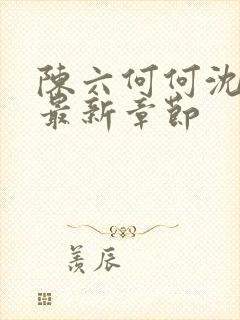 陳六何何沈
最新章節
羨辰